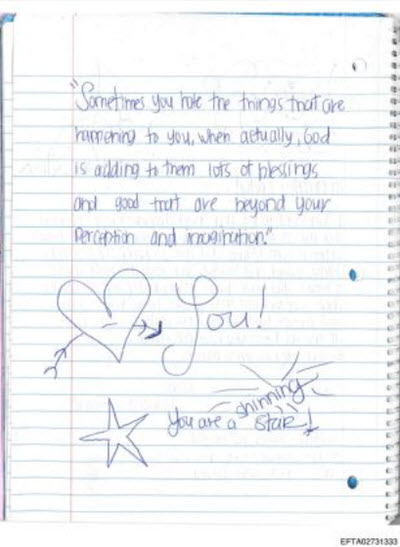 "Sometimes you hate the things that are
happening to you, when actually, God
is adding to them lots of blessings
and good that are beyond your
perception and imagination."
You!
shinning
You are a star!
EFTA02731333